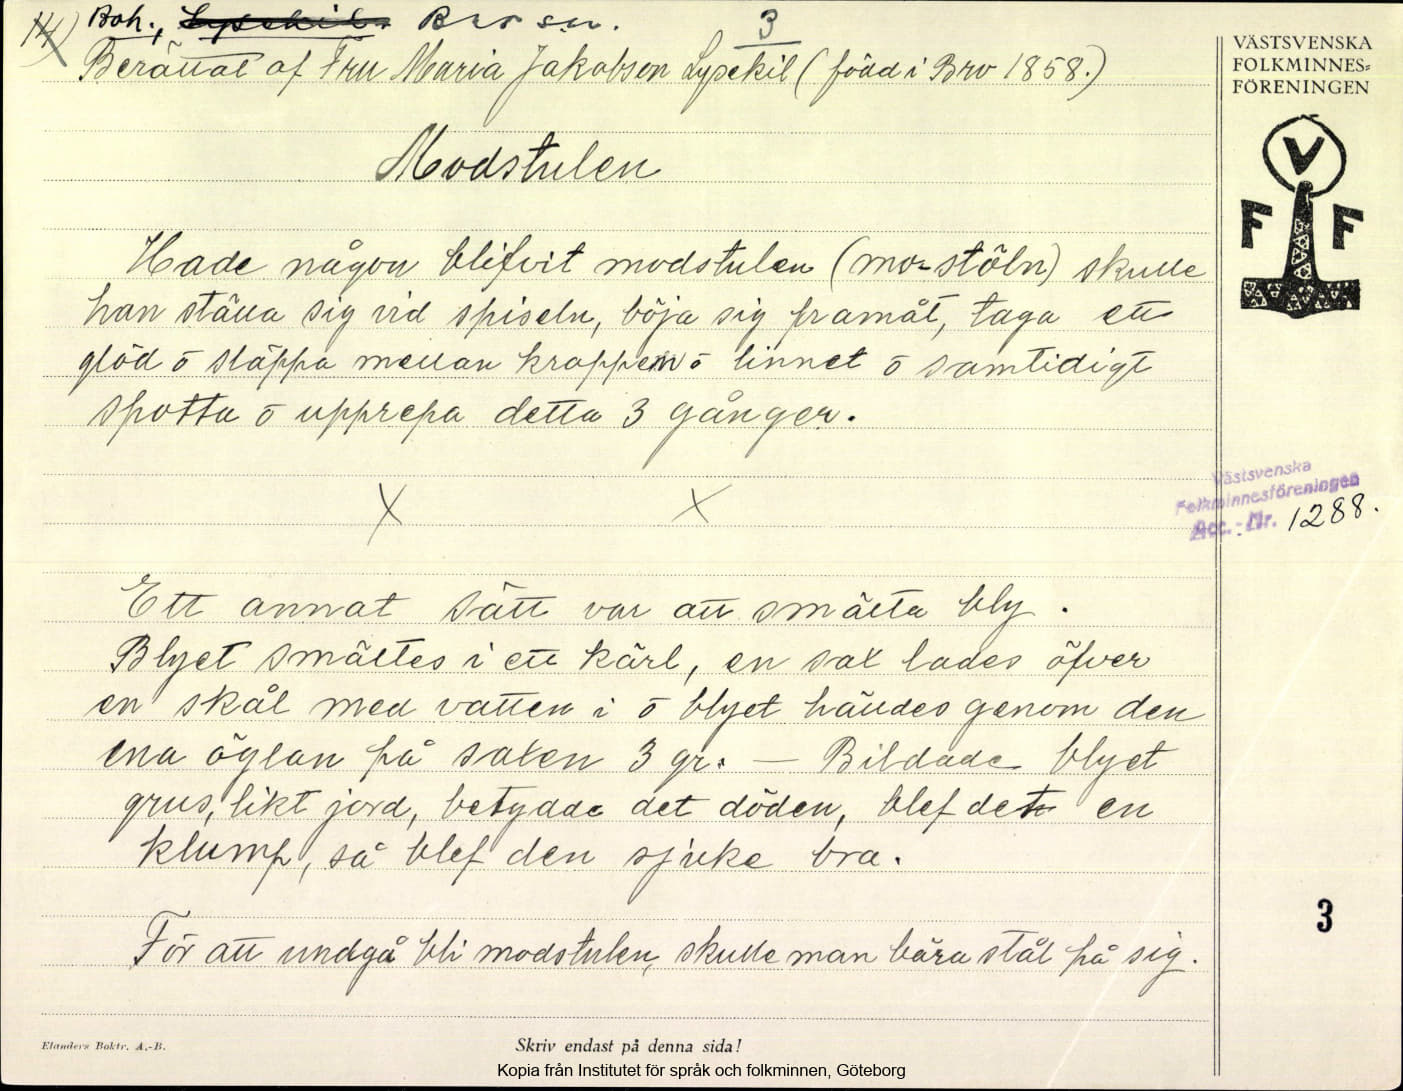 14) Boh., Bro sn. 3
Berättat af Fru Maria Jakobsen Lysekil (född i Bro 1858.)
VÄSTSVENSKA
FOLKMINNES=
FÖRENINGEN
V
F F
Modstulen
Hade någon blifvit modstulen (mo-stöln) skulle
han ställa sig vid spiseln, böja sig framåt, taga ett
glöd o släppa mellan kroppen o linnet o samtidigt
spotta o upprepa detta 3 gånger.
X X
Västsvenska
Folkminnesföreningen
Acc.-Nr. 1288.
Ett annat sätt var att smälta bly.
Blyet smältes i ett kärl, en sax lades öfver
en skål med vatten i o blyet hälldes genom den
ena öglan på saxen 3 gr. — Bildade blyet
grus, likt jord, betydde det döden, blef det en
klump, så blef den sjuke bra.
3
För att undgå bli modstulen, skulle man bära stål på sig.
Elanders Boktr. A.-B.
Skriv endast på denna sida!
Kopia från Institutet för språk och folkminnen, Göteborg